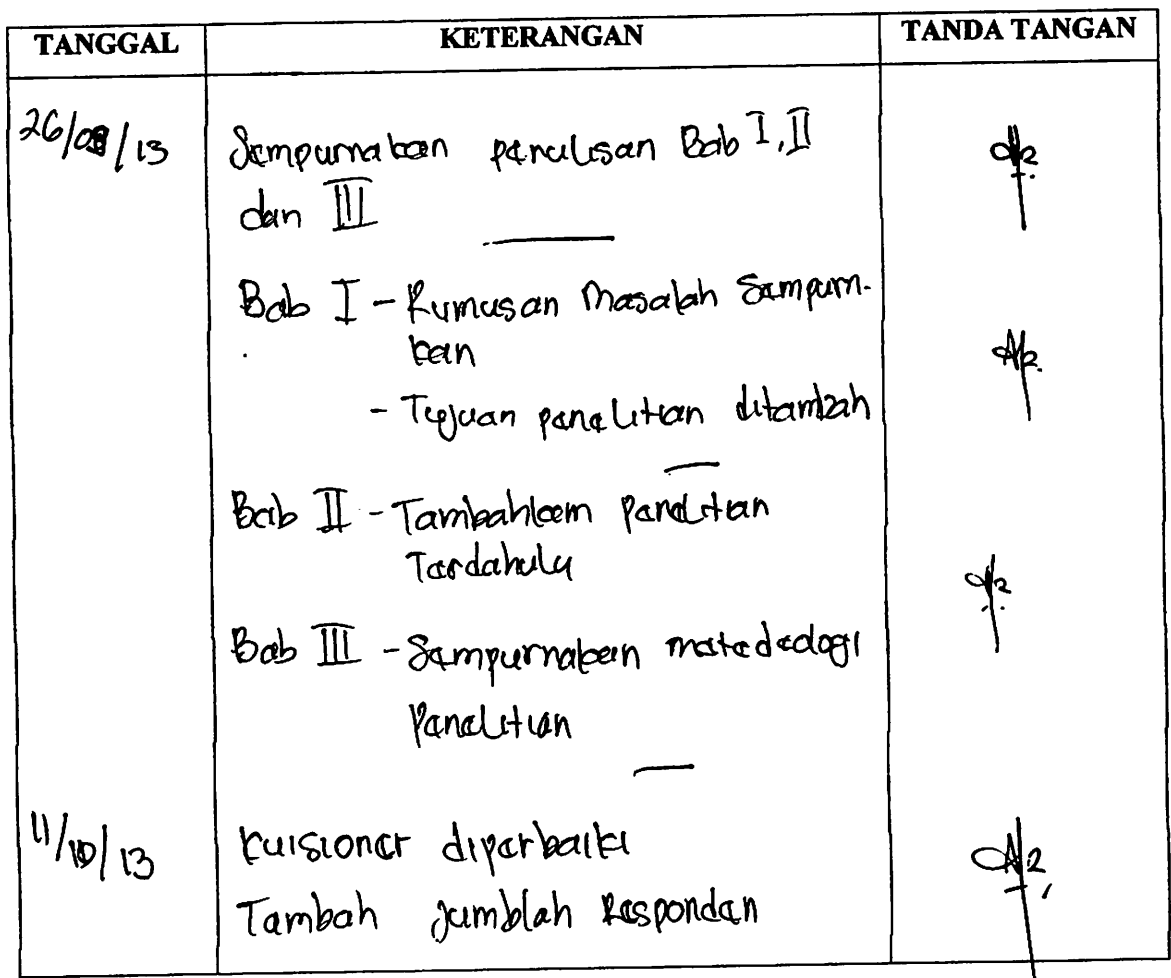 TANGGAL KETERANGAN TANDA TANGAN
26/08/13 Sempurnakan penulisan Bab I, II
dan III
Bab I - Rumusan Masalah Sempurn-
kan
- Tujuan penelitian ditambah
Bab II - Tambahkan Penelitian
Terdahulu
Bab III - Sempurnakan metededogi
Penelitian
11/10/13 Kuisioner diperbaiki
Tambah Jumblah Responden